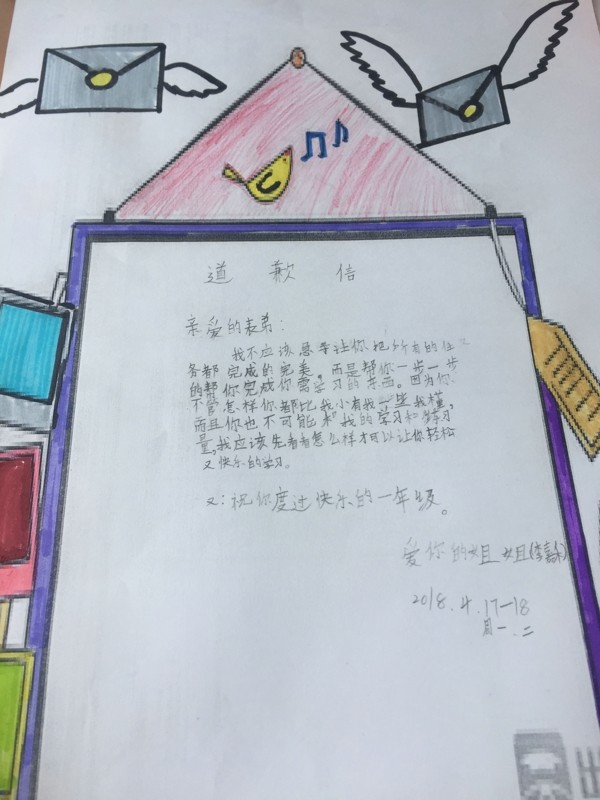 道 歉 信
亲爱的表弟：
我不应该急于让你把所有的任
务都完成的完美。而是帮你一步一步
的帮你完成你需学习的东西。因为你
不管怎样你都比我小有我一些我懂
而且你也不可能和我的学习和练习
量,我应该先看看怎么样才可以让你轻松
又快乐的学习。
又：祝你度过快乐的一年级。
爱你的姐姐
2018.4.17—18
周一.二
出